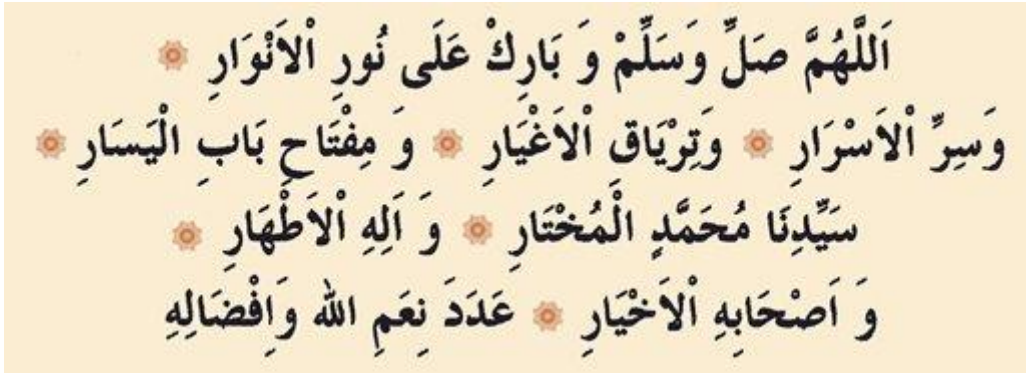 اَللَّهُمَّ صَلِّ وَسَلِّمْ وَ بَارِكْ عَلَى نُورِ اْلاَنْوَارِ
وَسِرِّ اْلاَسْرَارِ ۞ وَتِرْيَاقِ اْلاَغْيَارِ ۞ وَ مِفْتَاحِ بَابِ الْيَسَارِ ۞
سَيِّدِنَا مُحَمَّدٍ الْمُخْتَارِ ۞ وَ اَلِهِ اْلاَطْهَارِ ۞
وَ اَصْحَابِهِ اْلاَخْيَارِ ۞ عَدَدَ نِعَمِ الله وَاِفْضَالِهِ